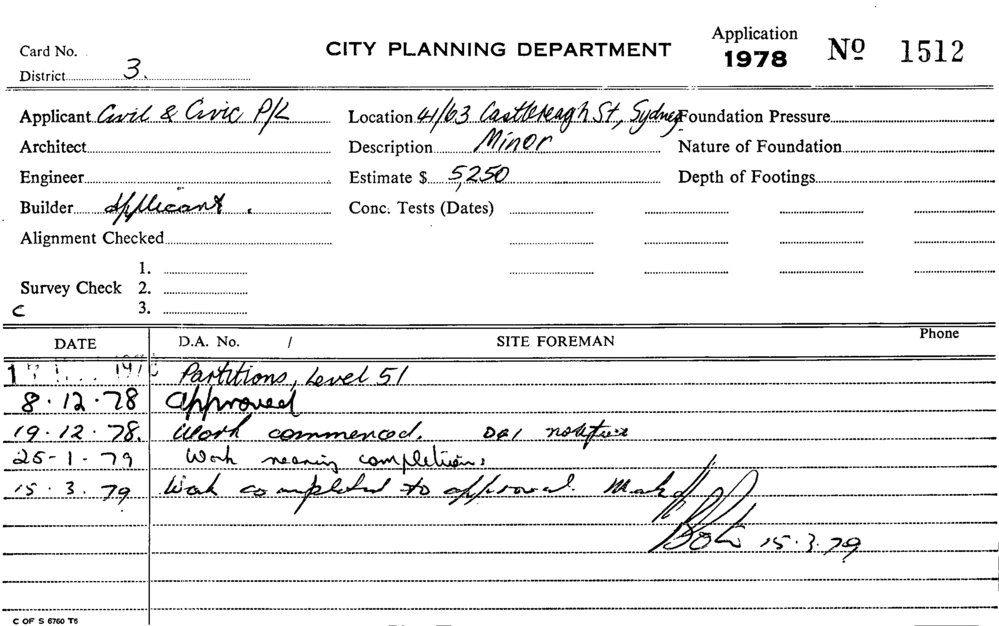 Card No.
CITY PLANNING DEPARTMENT
Application
1978 Nº 1512
District 3.
Applicant Civil & Civic P/L Location 41/63 Castlereagh St, Sydney Foundation Pressure
Architect Description Minor Nature of Foundation
Engineer Estimate $ 5,250 Depth of Footings
Builder applicant. Conc. Tests (Dates)
Alignment Checked
1.
Survey Check 2.
C 3.
DATE D.A. No. / SITE FOREMAN Phone
Partitions, Level 51
8.12.78 approved
19.12.78. Work commenced.
25-1-79 Work nearing completion.
15.3.79 Work completed to approval. Mark off
15.3.79
C OF S 6760 T6